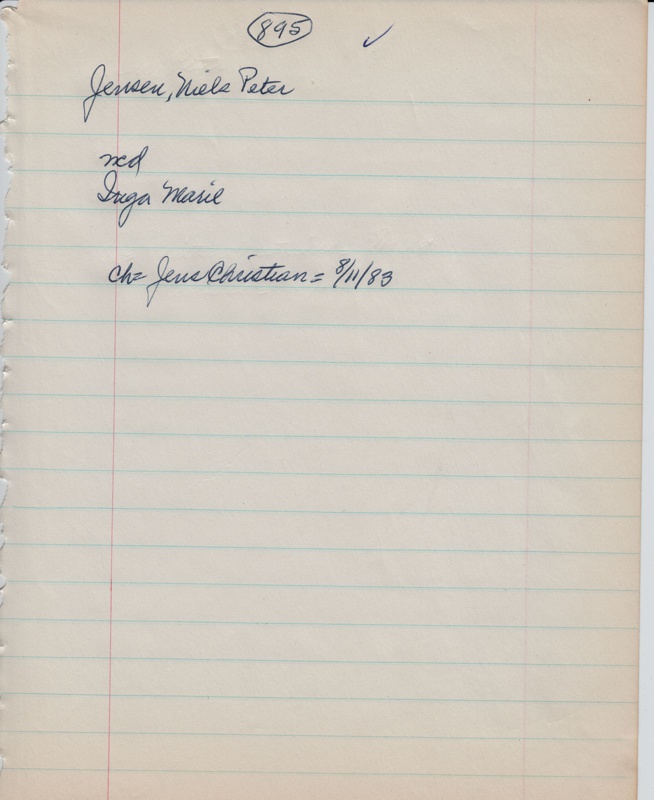 895 ✓
Jensen, Niels Peter
md
Inga Marie
ch= Jens Christian = 8/11/83